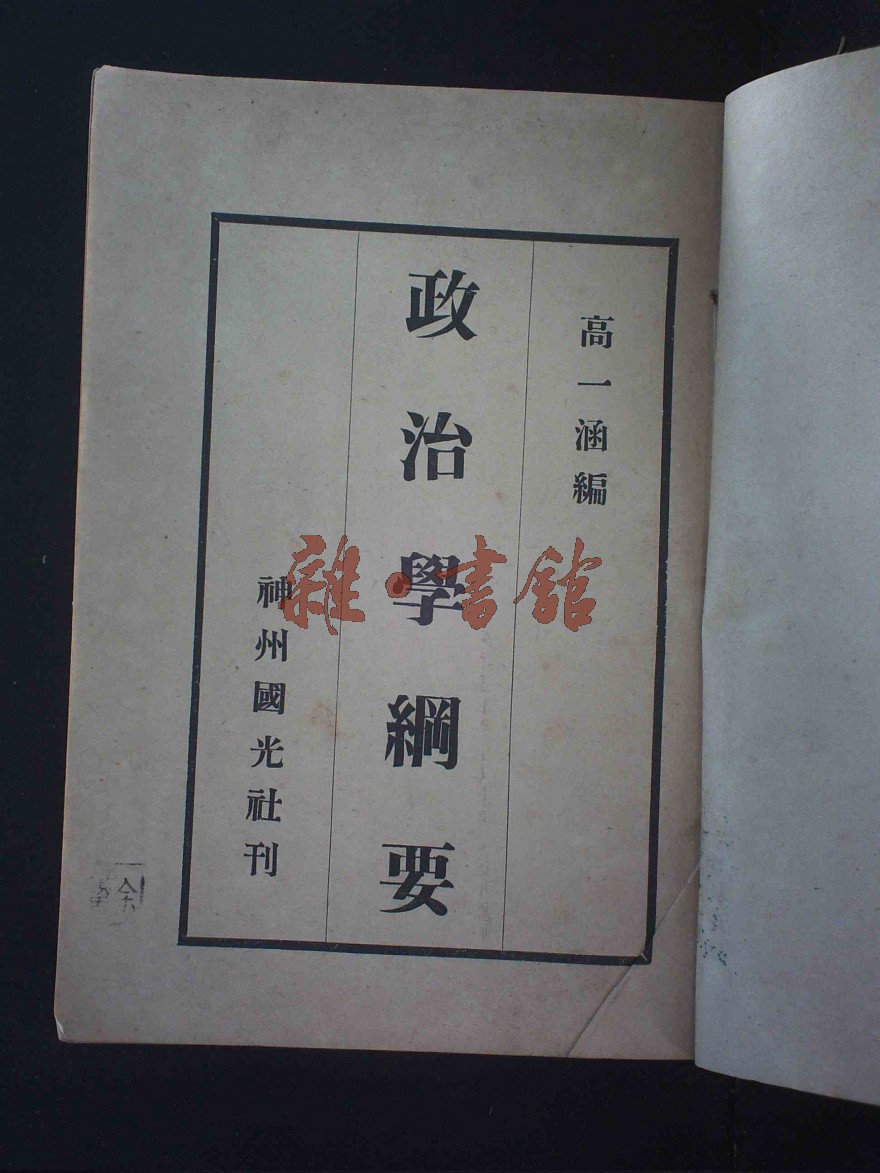 高一涵編
政治學綱要
神州國光社刊
雜·書館